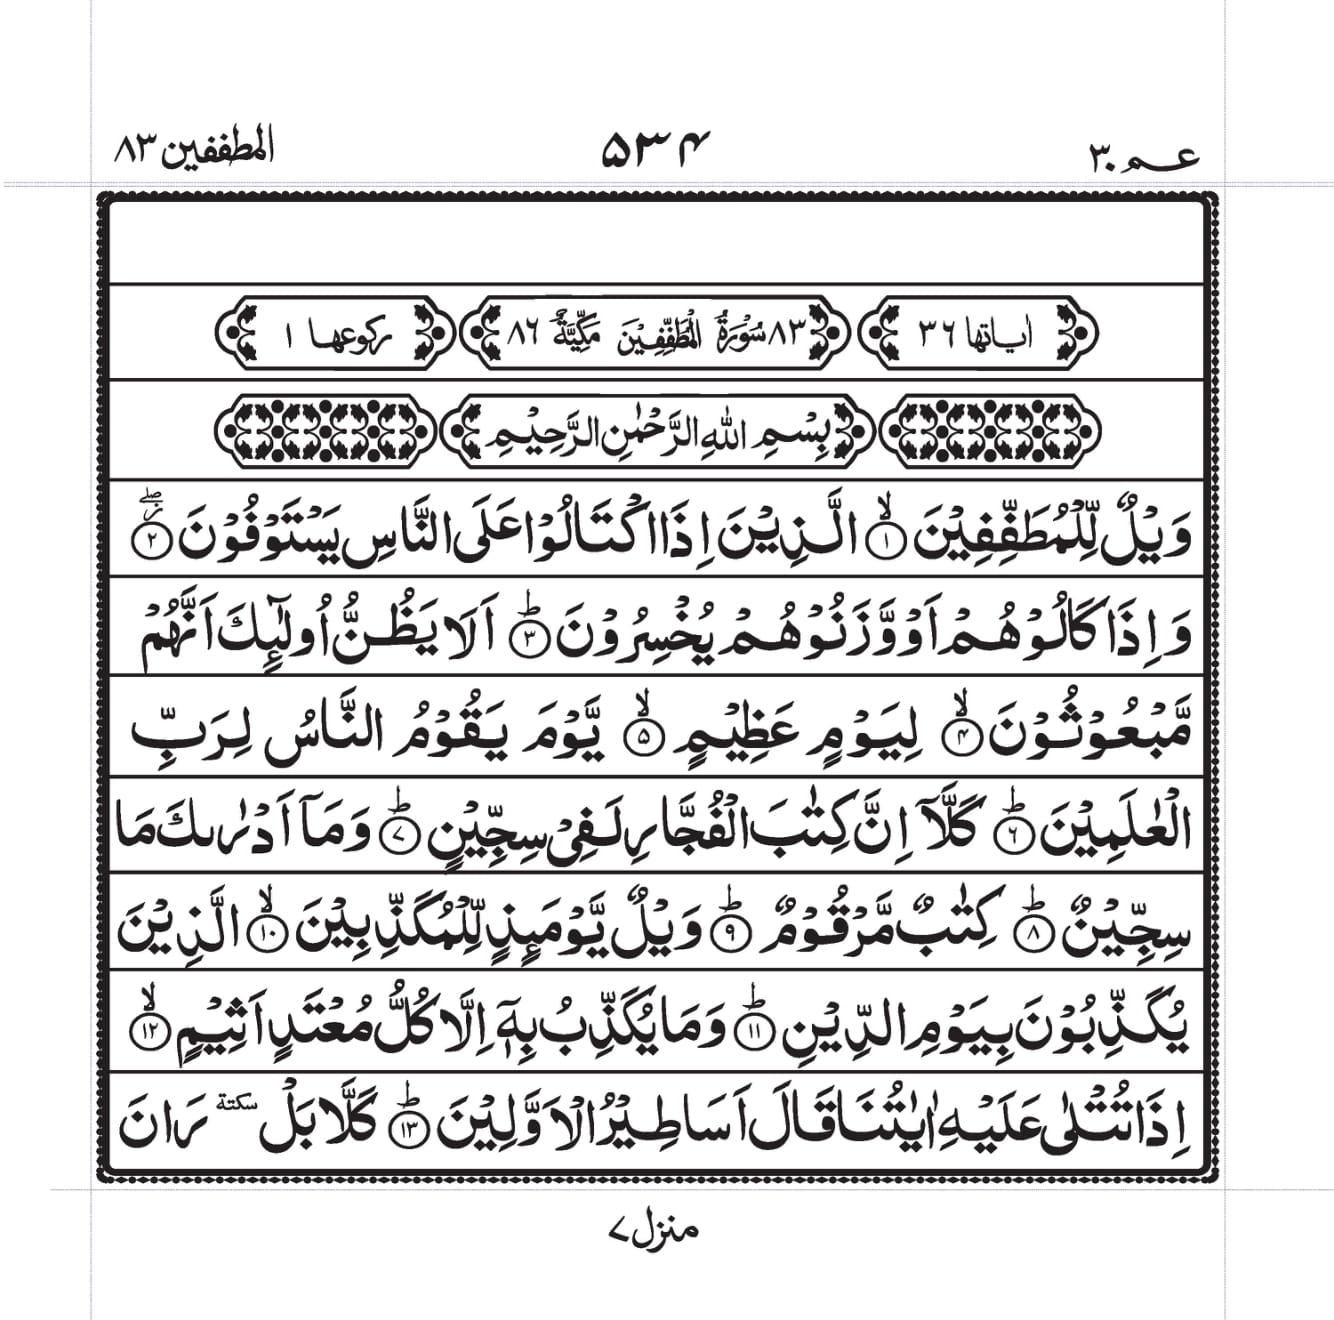 عم ۳۰ ۵۳۴ المطففين ۸۳
اٰیاتها ۳۶ ۸۳ سُوْرَةُ الْمُطَفِّفِيْنَ مَكِّيَّةٌ ۸۶ ركوعها ۱
بِسْمِ اللّٰهِ الرَّحْمٰنِ الرَّحِيْمِ
وَيْلٌ لِّلْمُطَفِّفِيْنَ ۙ‏﴿۱﴾ الَّذِيْنَ اِذَا اكْتَالُوْا عَلَى النَّاسِ يَسْتَوْفُوْنَ ۖ‏ز ﴿۲﴾
وَ اِذَا كَالُوْهُمْ اَوْ وَّزَنُوْهُمْ يُخْسِرُوْنَ ؕ‏﴿۳﴾ اَلَا يَظُنُّ اُولٰٓئِكَ اَنَّهُمْ
مَّبْعُوْثُوْنَ ۙ‏﴿۴﴾ لِيَوْمٍ عَظِيْمٍ ۙ‏﴿۵﴾ يَّوْمَ يَقُوْمُ النَّاسُ لِرَبِّ
الْعٰلَمِيْنَ ؕ‏﴿۶﴾ كَلَّاۤ اِنَّ كِتٰبَ الْفُجَّارِ لَفِيْ سِجِّيْنٍ ؕ‏﴿۷﴾ وَمَاۤ اَدْرٰىكَ مَا
سِجِّيْنٌ ؕ‏﴿۸﴾ كِتٰبٌ مَّرْقُوْمٌ ؕ‏﴿۹﴾ وَيْلٌ يَّوْمَئِذٍ لِّلْمُكَذِّبِيْنَ ۙ‏﴿۱۰﴾ الَّذِيْنَ
يُكَذِّبُوْنَ بِيَوْمِ الدِّيْنِ ؕ‏﴿۱۱﴾ وَمَا يُكَذِّبُ بِهٖۤ اِلَّا كُلُّ مُعْتَدٍ اَثِيْمٍ ۙ‏﴿۱۲﴾
اِذَا تُتْلٰى عَلَيْهِ اٰيٰتُنَا قَالَ اَسَاطِيْرُ الْاَوَّلِيْنَ ؕ‏﴿۱۳﴾ كَلَّا بَلْ سكتة رَانَ
منزل ۷